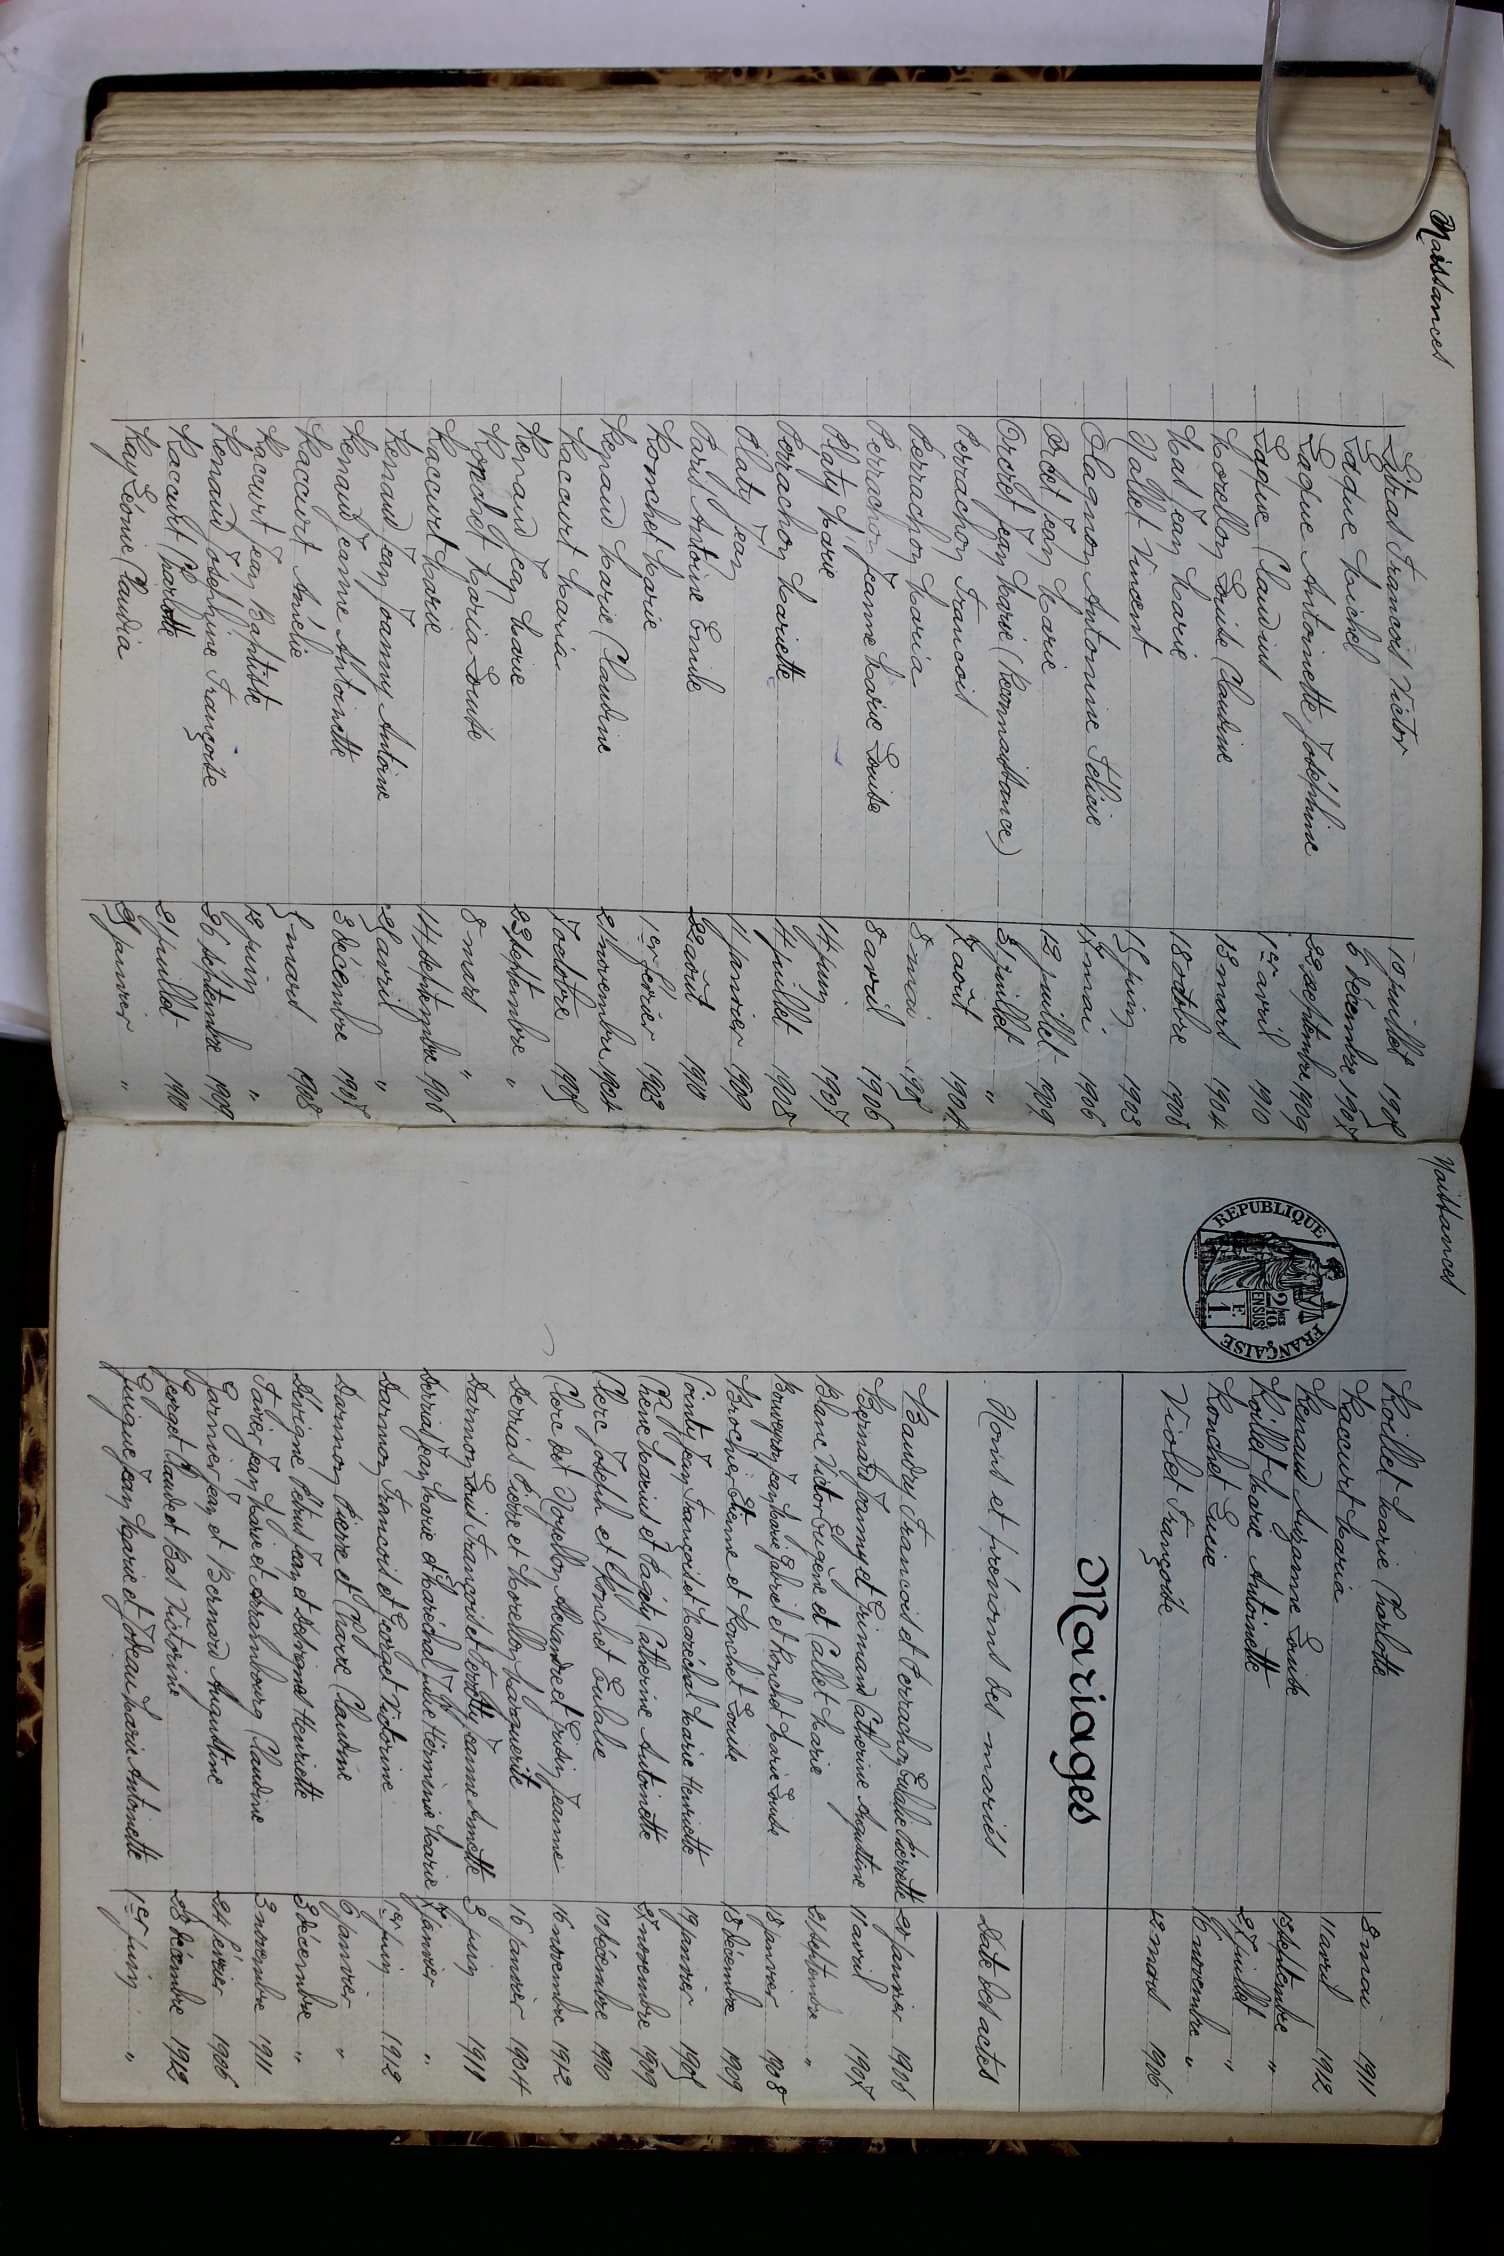 Naissances
Litras François Victor 10 juillet 1905
Laque Michel 6 décembre 1907
Laque Antoinette Joséphine 22 septembre 1909
Laque Claudius 1er avril 1910
Morellon Louise Claudine 13 mars 1904
Mas Jean Marie 18 octobre 1908
Nallet Vincent 15 juin 1903
Olagnon Antonine Félicie 17 mai 1906
Orcet Jean Marie 12 juillet 1909
Orcet Jean Marie (Reconnaissance) 31 juillet "
Perrachon François 7 août 1904
Perrachon Maria 8 mai 1905
Perrachon Jeanne Marie Louise 8 avril 1906
Platy Marie 14 juin 1907
Perrachon Mariette 14 juillet 1908
Platy Jean 11 janvier 1909
Paris Antoine Emile 22 août 1910
Ronchet Marie 1er février 1903
Renaud Marie Claudine 21 novembre 1904
Raccurt Maria 7 octobre 1905
Renaud Jean Marie 23 septembre "
Ronchet Maria Louise 8 mars "
Raccurt Marie 14 septembre 1906
Renaud Jean Joanny Antoine 25 avril "
Renaud Jeanne Antoinette 3 décembre 1907
Raccurt Amélie 5 mars 1908
Raccurt Jean Baptiste 12 juin "
Renaud Joséphine Françoise 26 septembre 1909
Raccurt Charlotte 21 juillet 1910
Ray Léonie Claudia 25 janvier "
Naissances
REPUBLIQUE FRANÇAISE
2/10 MES EN SUS
1 F.
Roillet Marie Charlotte 8 mai 1911
Raccurt Maria 11 avril 1912
Renaud Suzanne Louise 13 septembre "
Roillet Marie Antoinette 27 juillet "
Ronchet Lucie 16 novembre "
Violet Françoise 12 mars 1906
Mariages
Noms et prénoms des mariés Date des actes
Baudry François et Perrachon Eulalie Pierrette 27 janvier 1906
Bernard Joanny et Guinand Catherine Augustine 11 avril 1907
Blanc Victor Eugène et Callet Marie 21 septembre "
Bouvyron Jean Marie Gabriel et Ronchet Marie Louise 18 janvier 1908
Brochier Etienne et Ronchet Louise 18 décembre 1909
Cointy Jean François et Maréchal Marie Henriette 19 janvier 1905
Chêne Marius et Pagey Catherine Antoinette 27 novembre 1909
Clerc Joseph et Ronchet Eulalie 10 décembre 1910
Clerc dit Novellon Alexandre et Guin Jeanne 16 novembre 1912
Derrias Pierre et Morellon Marguerite 16 janvier 1904
Darmon Louis François et Jeanne Annette 3 juin 1911
Derrias Jean Marie et Maréchal Julie Herminie Marie 7 janvier "
Darmon François et Georget Victorine 1er juin 1912
Darmon Pierre et Claudine 6 janvier "
Dévigne Pétrus Jean et Henriette 3 décembre "
Favier Jean Marie et Arrambourg Claudine 3 novembre 1911
Garnier Jean et Bernard Augustine 24 février 1906
Georget Claude et Bas Victorine 28 décembre 1912
Guigue Jean Marie et Marie Antoinette 1er juin "